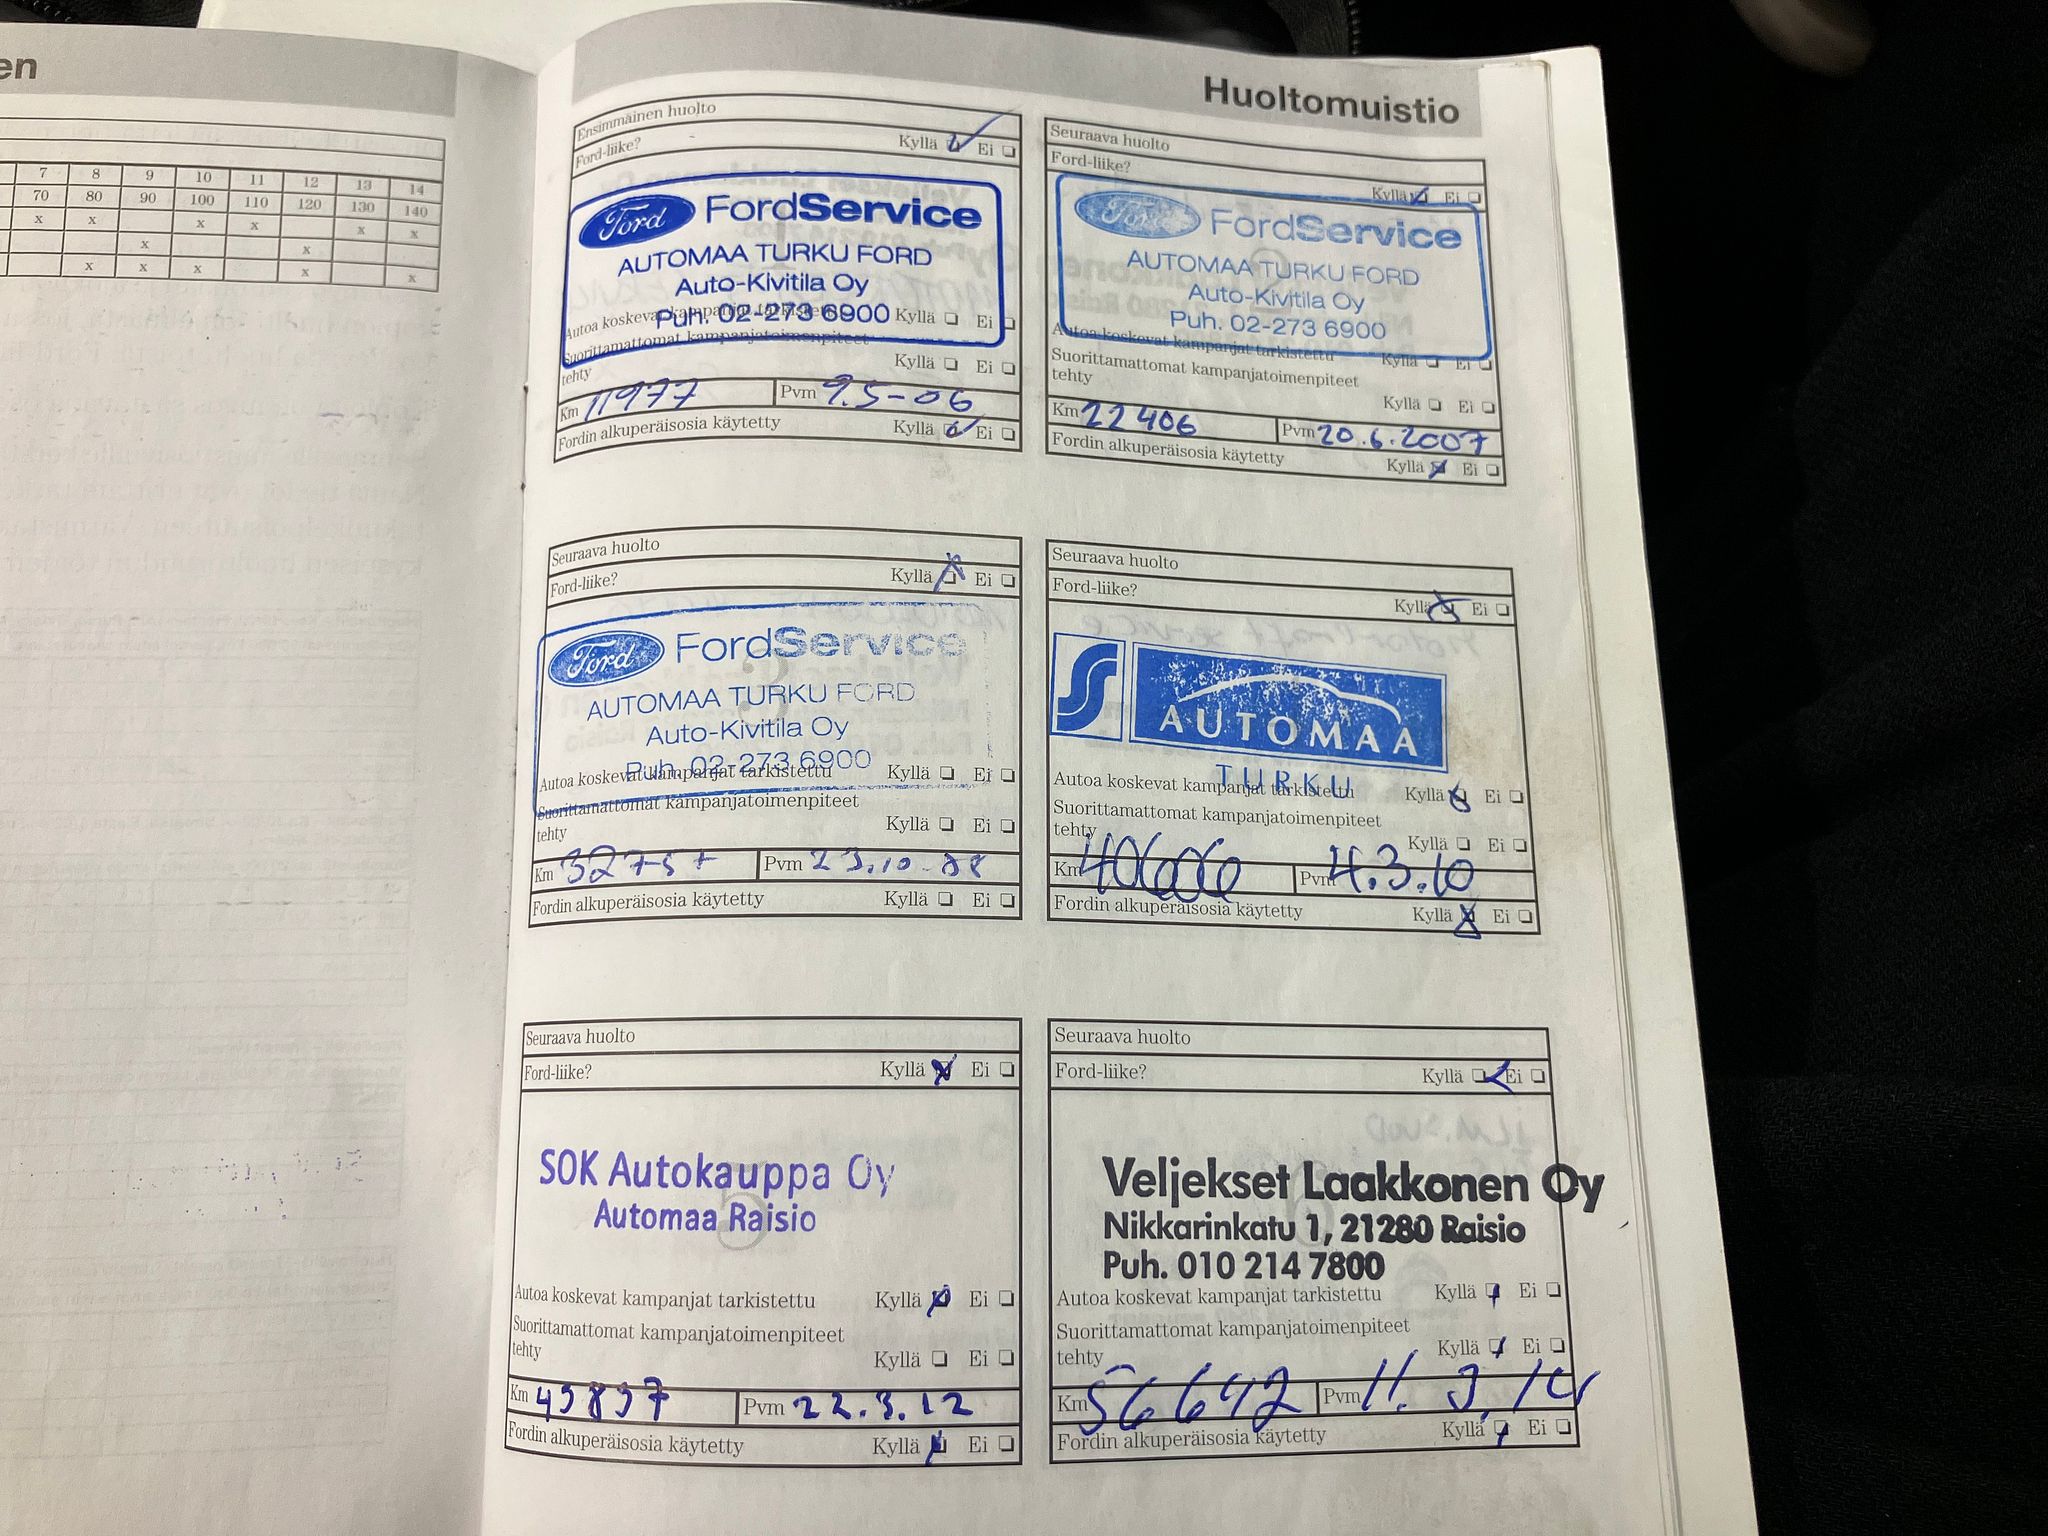 en
7 8 9 10 11 12 13 14
70 80 90 100 110 120 130 140
x x x x x x
x x
x x x x x
Huoltomuistio
Ensimmäinen huolto
Ford-liike? Kyllä Ei
Ford FordService
AUTOMAA TURKU FORD
Auto-Kivitila Oy
Puh. 02-273 6900
Autoa koskevat kampanjat tarkistettu Kyllä Ei
Suorittamattomat kampanjatoimenpiteet
tehty Kyllä Ei
Km 11977 Pvm 9.5-06
Fordin alkuperäisosia käytetty Kyllä Ei
Seuraava huolto
Ford-liike?
Kyllä Ei
Ford FordService
AUTOMAA TURKU FORD
Auto-Kivitila Oy
Puh. 02-273 6900
Autoa koskevat kampanjat tarkistettu Kyllä Ei
Suorittamattomat kampanjatoimenpiteet
tehty Kyllä Ei
Km 22406 Pvm 20.6.2007
Fordin alkuperäisosia käytetty Kyllä Ei
Seuraava huolto
Ford-liike? Kyllä Ei
Ford FordService
AUTOMAA TURKU FORD
Auto-Kivitila Oy
Puh. 02-273 6900
Autoa koskevat kampanjat tarkistettu Kyllä Ei
Suorittamattomat kampanjatoimenpiteet
tehty Kyllä Ei
Km Pvm 23.10-08
Fordin alkuperäisosia käytetty Kyllä Ei
Seuraava huolto
Ford-liike?
Kyllä Ei
AUTOMAA
TURKU
Autoa koskevat kampanjat tarkistettu Kyllä Ei
Suorittamattomat kampanjatoimenpiteet
tehty Kyllä Ei
Km 40606 Pvm 4.3.10
Fordin alkuperäisosia käytetty Kyllä Ei
Seuraava huolto
Ford-liike? Kyllä Ei
SOK Autokauppa Oy
Automaa Raisio
Autoa koskevat kampanjat tarkistettu Kyllä Ei
Suorittamattomat kampanjatoimenpiteet
tehty Kyllä Ei
Km 49897 Pvm 22.3.12
Fordin alkuperäisosia käytetty Kyllä Ei
Seuraava huolto
Ford-liike? Kyllä Ei
Veljekset Laakkonen Oy
Nikkarinkatu 1, 21280 Raisio
Puh. 010 214 7800
Autoa koskevat kampanjat tarkistettu Kyllä Ei
Suorittamattomat kampanjatoimenpiteet
tehty Kyllä Ei
Km 56642 Pvm 11.3.14
Fordin alkuperäisosia käytetty Kyllä Ei